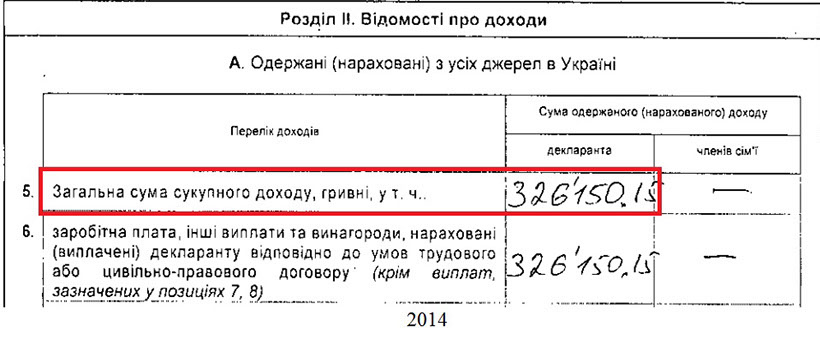 Розділ II. Відомості про доходи
А. Одержані (нараховані) з усіх джерел в Україні
Перелік доходів
Сума одержаного (нарахованого) доходу
декларанта
членів сім'ї
5. Загальна сума сукупного доходу, гривні, у т. ч.. 326'150.15 —
6. заробітна плата, інші виплати та винагороди, нараховані
(виплачені) декларанту відповідно до умов трудового
або цивільно-правового договору (крім виплат,
зазначених у позиціях 7, 8)
326'150.15 —
2014